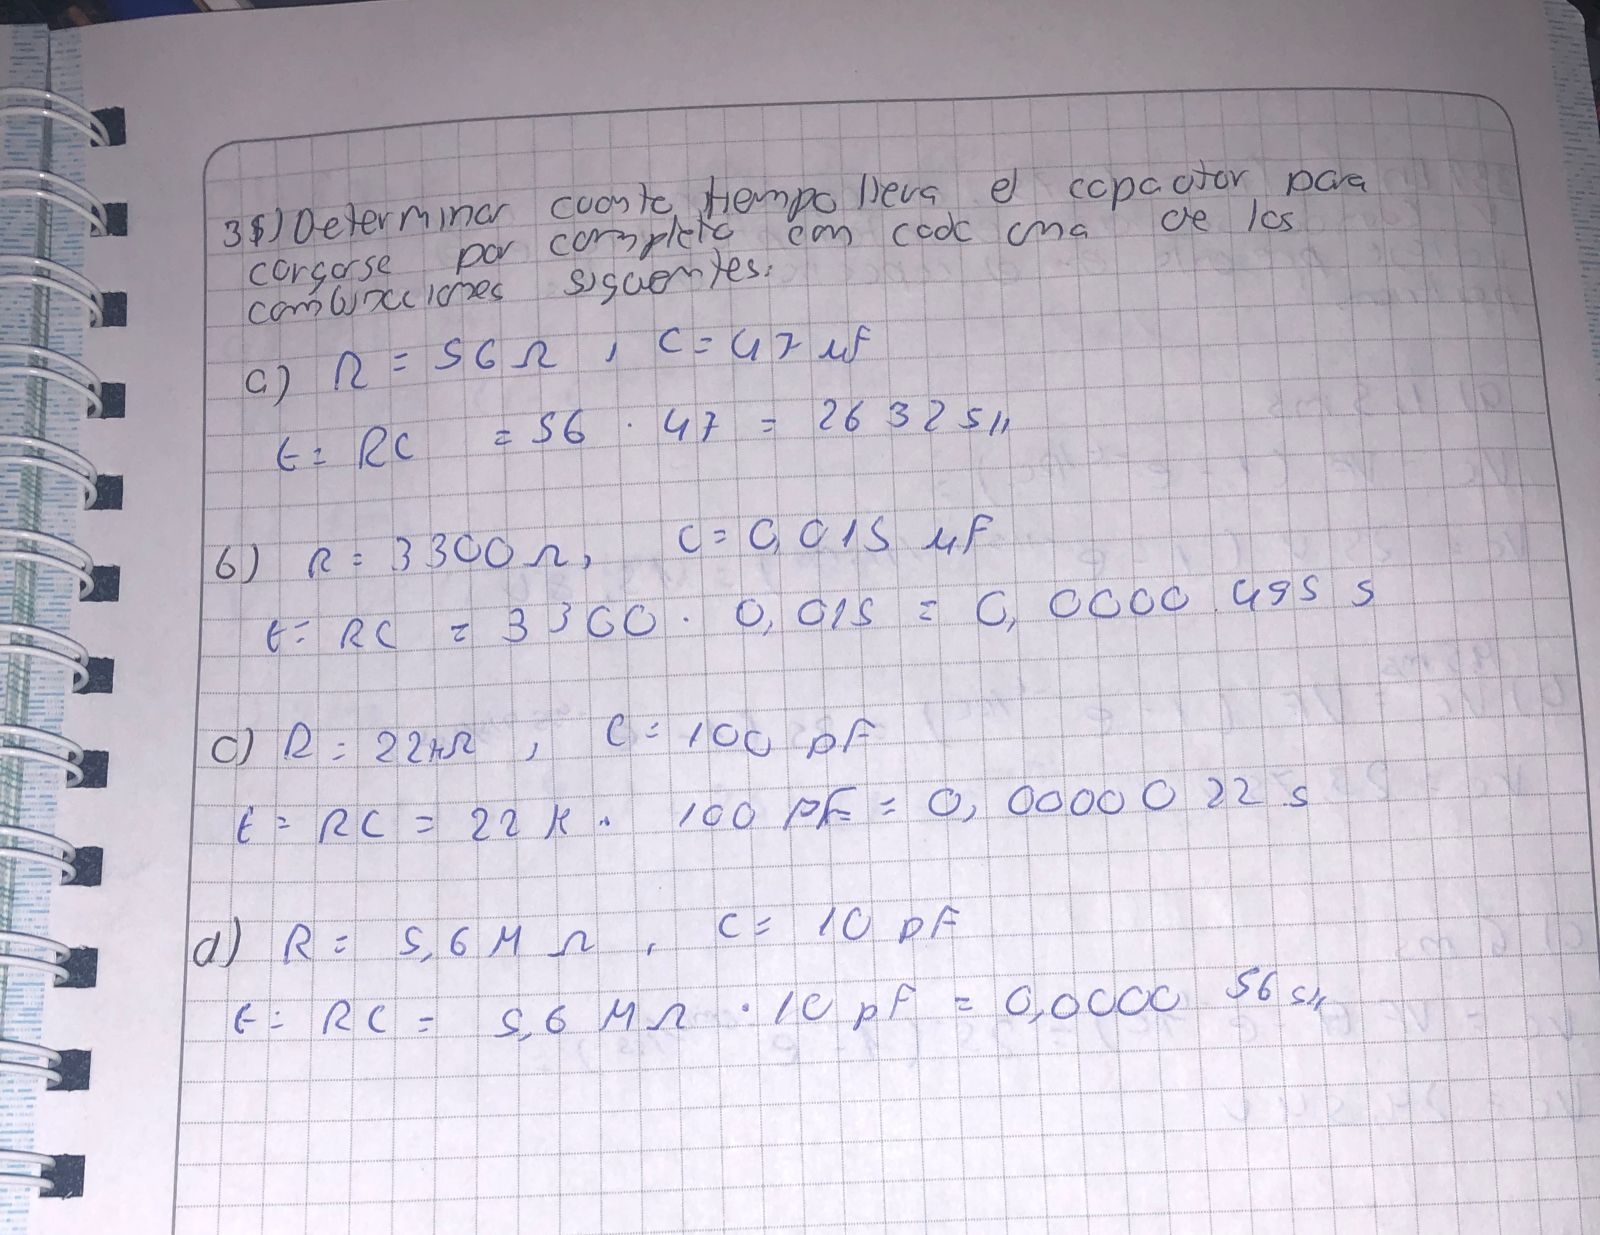 35) Determinar cuanto tiempo lleva el capacitor para
cargarse por completo con cada una de las
combinaciones siguentes:
a) R = 56 Ω , C = 47 μF
t = RC = 56 · 47 = 2632 s//
b) R = 3300 Ω, C = 0,015 μF
t = RC = 3300 · 0,015 = 0,0000495 s
c) R = 22 KΩ , C = 100 pF
t = RC = 22 K · 100 pF = 0,0000022 s
d) R = 5,6 M Ω , C = 10 pF
t = RC = 5,6 MΩ · 10 pF = 0,000056 s//